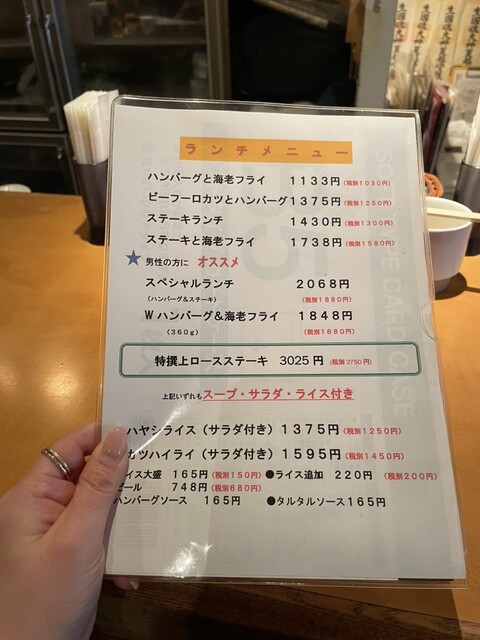 ランチメニュー
ハンバーグと海老フライ 1133円(税別1030円)
ビーフーロカツとハンバーグ1375円(税別1250円)
ステーキランチ 1430円(税別1300円)
ステーキと海老フライ 1738円(税別1580円)
★男性の方に オススメ
スペシャルランチ 2068円
(ハンバーグ&ステーキ) (税別1880円)
Wハンバーグ&海老フライ 1848円
(360g) (税別1680円)
特撰上ロースステーキ 3025円(税別2750円)
上記いずれもスープ・サラダ・ライス付き
ハヤシライス(サラダ付き)1375円(税別1250円)
カツハイライ(サラダ付き)1595円(税別1450円)
イス大盛 165円(税別150円)●ライス追加 220円 (税別200円)
ール 748円(税別680円)
ハンバーグソース 165円 ●タルタルソース165円
CARD CASE